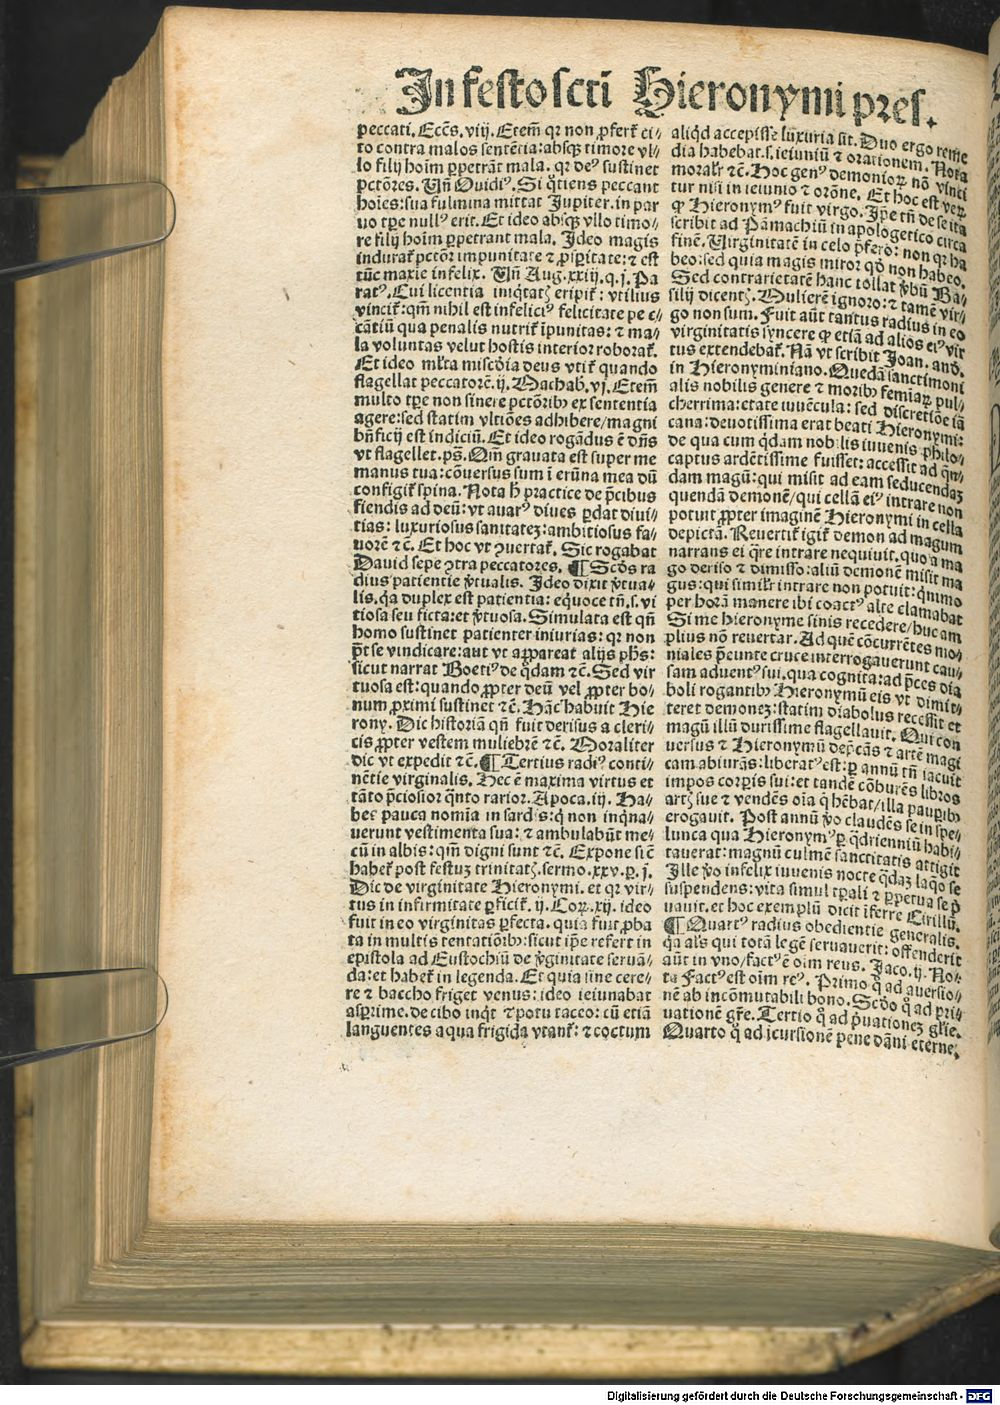 In festo scti Hieronymi pres.
peccati. Eccēs. viij. Etem̄ qr non ꝓfert̄ ci⸗
to contra malos sentētia: absqꝫ timore vl⸗
lo filij hoīm ꝑpetrāt mala. qr deꝰ sustinet
pctōres. Vn̄ Ouidiꝰ. Si q̇tiens peccant
hoīes: sua fulmina mittat Jupiter. in par
uo tꝑe nullꝰ erit. Et ideo absqꝫ vllo timo⸗
re filij hoīm ꝑpetrant mala. Ideo magis
indurat̄ pctōr impunitate ⁊ ꝓsꝑitate: ⁊ est
tūc maxie infelix. Vn̄ Aug. xxiij. q. j. Pa
ratꝰ. Cui licentia iniq̇tatꝭ eripit̄: vtilius
vincit̄: qm̄ nihil est infeliciꝰ felicitate peccātiū qua penalis nutrit̄ īpunitas: ⁊ ma⸗
la voluntas velut hostis interior roborat̄.
Et ideo ml̄ta miscd̄ia deus vtit̄ quando
flagellat peccatorē. ij. Machab. vj. Etem̄
multo tꝑe non sinere pctōribꝫ ex sententia
agere: sed statim vltiōes adhibere/magni
bn̄ficij est indiciū. Et ideo rogādus ē dn̄s
vt flagellet. ps̄. Qm̄ grauata est super me
manus tua: cōuersus sum ī erūna mea dū
configit̄ spina. Nota h̄ practice de p̄cibus
fiendis ad deū: vt auarꝰ diues ꝑdat diui⸗
tias: luxuriosus sanitateꝫ: ambitiosus fa⸗
uorē ⁊c̄. Et hoc vt ꝯuertat̄. Sic rogabat
Dauid sepe ꝯtra peccatores. ¶ Scd̄s ra
dius patientie v̄tualis. Ideo dixit v̄tua⸗
lis. qa duplex est patientia: equoce tn̄. s. vi
tiosa seu ficta: et v̄tuosa. Simulata est qn̄
homo sustinet patienter iniurias: qr non
p̄t se vindicare: aut vt appareat alijs ꝓbꝰ:
sicut narrat Boetiꝰ de q̇dam ⁊c̄. Sed vir
tuosa est: quando ꝓpter deū vel ꝓpter bo⸗
num ꝓximi sustinet ⁊c̄. Hāc habuit Hie
rony. Dic historiā qn̄ fuit derisus a cleri⸗
cis ꝓpter vestem muliebrē ⁊c̄. Moraliter
dic vt expedit ⁊c̄. ¶ Tertius radiꝰ conti⸗
nētie virginalis. Hec ē maxima virtus et
tāto p̄ciosior q̇nto rarior. Apoca. iij. Ha⸗
bes pauca nomīa in sardis: q̄ non inq̇na⸗
uerunt vestimenta sua: ⁊ ambulabūt me⸗
cū in albis: qm̄ digni sunt ⁊c̄. Expone sic̄
habet̄ post festuꝫ trinitatꝭ. sermo. xxv. ꝑ. j.
Dic de virginitate Hieronymi. et qr vir⸗
tus in infirmitate ꝑficit̄. ij. Coꝝ. xij. ideo
fuit in eo virginitas ꝑfecta. quia fuit ꝓba
ta in multis tentatiōibꝫ: sicut ip̄e refert in
epistola ad Eustochiū de v̄ginitate seruā⸗
da: et habet̄ in legenda. Et quia sine cere⸗
re ⁊ baccho friget venus: ideo ieiunabat
asꝑrime. de cibo inq̇t ⁊ potu taceo: cū etiā
languentes aqua frigida vtant̄: ⁊ coctum
aliq̇d accepisse luxuria sit. Duo ergo reme
dia habebat. s. ieiuniū ⁊ orationem. Nota
moralr̄ ⁊c̄. Hoc genꝰ demonioꝝ nō vinci
tur nisi in ieiunio ⁊ orōne. Et hoc est veꝝ
ꝙ Hieronymꝰ fuit virgo. Ip̄e tn̄ de se ita
scribit ad Pāmachiū in apologetico circa
finē. Virginitatē in celo p̄fero: non qr ha
beo: sed quia magis miror qd̄ non habeo.
Sed contrarietatē hanc tollat v̄bū Ba⸗
silij dicentꝭ. Mulierē ignoro: ⁊ tamē vir⸗
go non sum. Fuit aūt tantus radius in eo
virginitatis syncere ꝙ etiā ad alios eiꝰ vir
tus extendebat̄. Nā vt scribit Joan. and̄.
in Hieronyminiano. Quedā sanctimoni
alis nobilis genere ⁊ moribꝫ femiaꝝ pul⸗
cherrima: etate iuuēcula: sed discretiōe iā
cana: deuotissima erat beati Hieronymi:
de qua cum q̇dam nobilis iuuenis philo⸗
captus ardētissime fuisset: accessit ad q̇n⸗
dam magū: qui misit ad eam seducendaꝫ
quendā demonē/qui cellā eiꝰ intrare non
potuit ꝓpter imaginē Hieronymi in cella
depictā. Reuertit̄ igit̄ demon ad magum
narrans ei q̄re intrare nequiuit. quo a ma
go deriso ⁊ dimisso: aliū demonē misit ma
gus: qui similr̄ intrare non potuit: q̇nimo
per horā manere ibi coactꝰ alte clamabat
Si me hieronyme sinis recedere/huc am
plius nō reuertar. Ad quē cōcurrētes mo⸗
niales p̄eunte cruce interrogauerunt cau⸗
sam aduentꝰ sui. qua cognita: ad p̄ces dia
boli rogantibꝫ Hieronymū eis vt dimit⸗
teret demoneꝫ: statim diabolus recessit et
magū illū durissime flagellauit. Qui con
uersus ⁊ Hieronymū dep̄cās ⁊ artē magi
cam abiurās: liberatꝰ est: ꝑ annū tn̄ iacuit
impos corꝑis sui: et tandē cōburēs libros
artꝭ sue ⁊ vendēs oīa q̄ hēbat/illa pauꝑibꝫ
erogauit. Post annū v̄o claudēs se in spe⸗
lunca qua Hieronymꝰ ꝑ q̇drienniū habi⸗
tauerat: magnū culmē sanctitatis attigit
Ille v̄o infelix iuuenis nocte q̇daꝫ laq̇o se
suspendens: vita simul tꝑali ⁊ ꝑpetua se p̄
uauit. et hoc exemplū dicit īferre Cirillū.
¶ Quartꝰ radius obedientie generalis.
qa als̄ qui totā legē seruauerit: offenderit
aūt in vno/factꝰ ē oīm reus. Jaco. ij. No⸗
ta Factꝰ est oīm reꝰ. Primo q̊ ad auersio⸗
nē ab incōmutabili bono. Scd̄o q̊ ad pri⸗
uationē gr̄e. Tertio q̊ ad p̄uationeꝫ gl̄ie.
Quarto q̊ ad īcursionē pene dāni eterne.
Digitalisierung gefördert durch die Deutsche Forschungsgemeinschaft - DFG